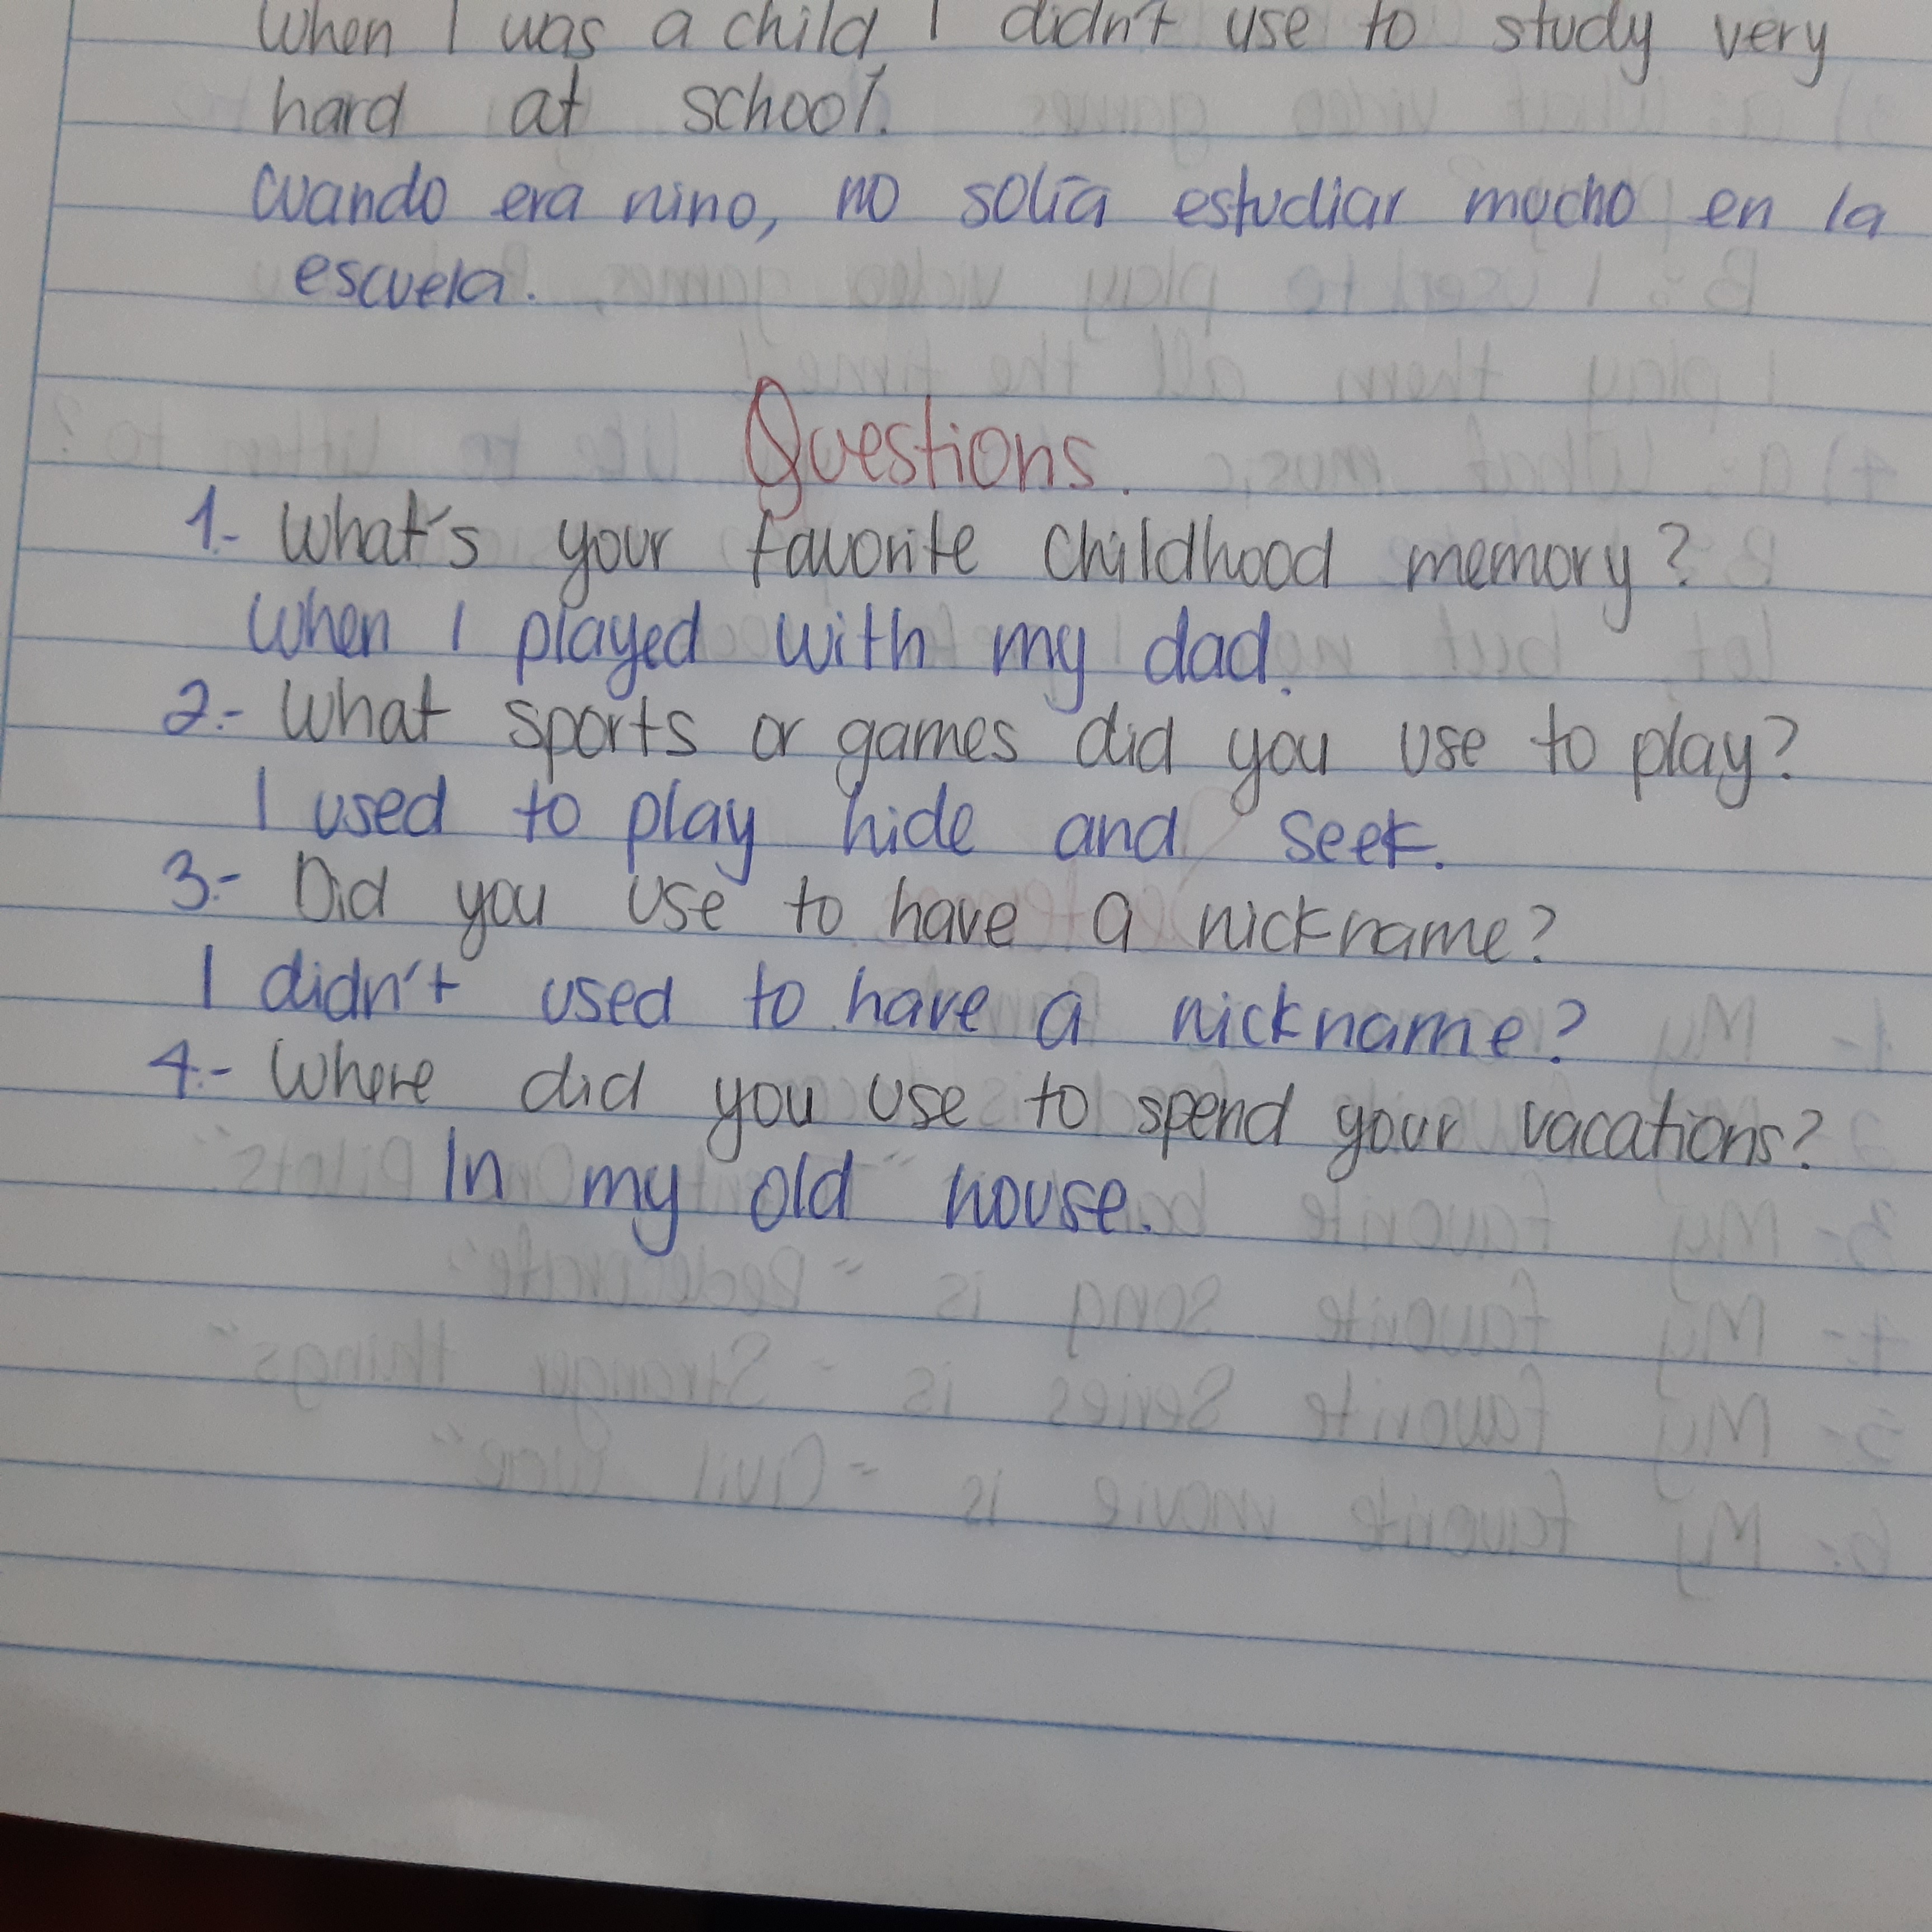 When I was a child, I didn't use to study very
hard at school.
cuando era nino, no solía estudiar mucho en la
escuela.
Questions.
1.- What's your favorite childhood memory?
When I played with my dad.
2.- What sports or games did you use to play?
I used to play hide and seek.
3.- Did you use to have a nickname?
I didn't used to have a nickname?
4.- Where did you use to spend your vacations?
In my old house.